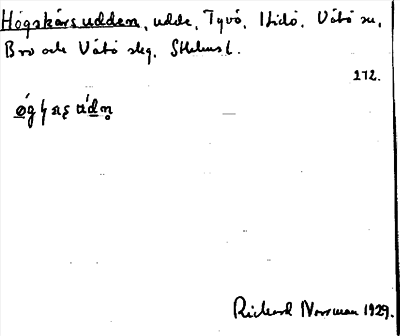 Högskärsudden, udde, Tyvö, Hlidö, Vätö sn,
Bro och Vätö skg, Sthlms l.
272.
Richard Norrman 1929.